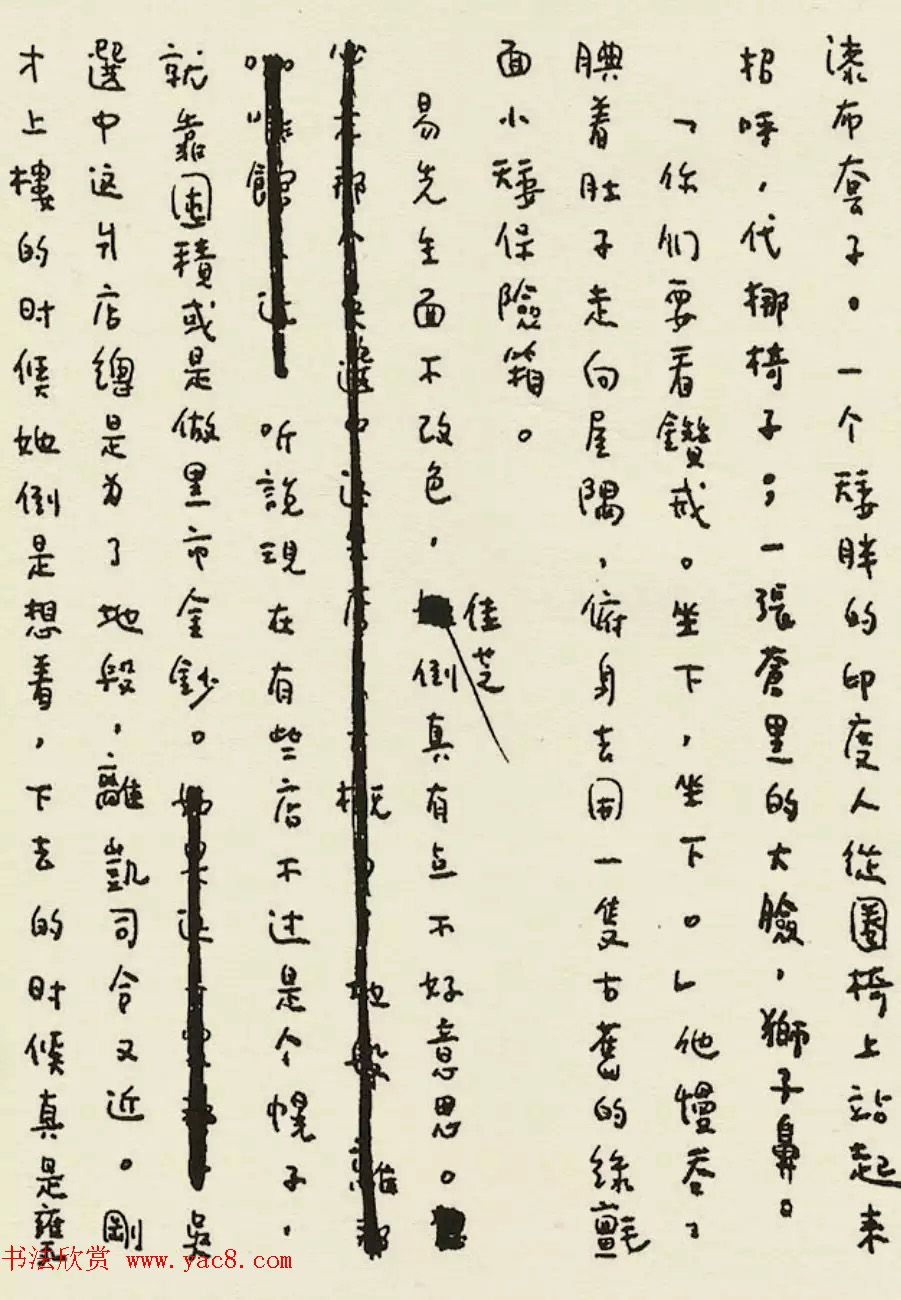 漆布套子。一个矮胖的印度人從圈椅上站起来
招呼，代挪椅子；一張蒼黑的大臉，獅子鼻。
「你们要看鑽戒。坐下，坐下。」他慢吞々
腆着肚子走向屋隅，俯身去開一隻古舊的綠氈
面小矮保險箱。
易先生面不改色，佳芝倒真有点不好意思。
听說現在有些店不过是个幌子，
就靠囤積或是做黑市金鈔。吳
選中这爿店總是为了地段，離凱司令又近。剛
才上樓的时候她倒是想着，下去的时候真是甕
书法欣赏 www.yac8.com